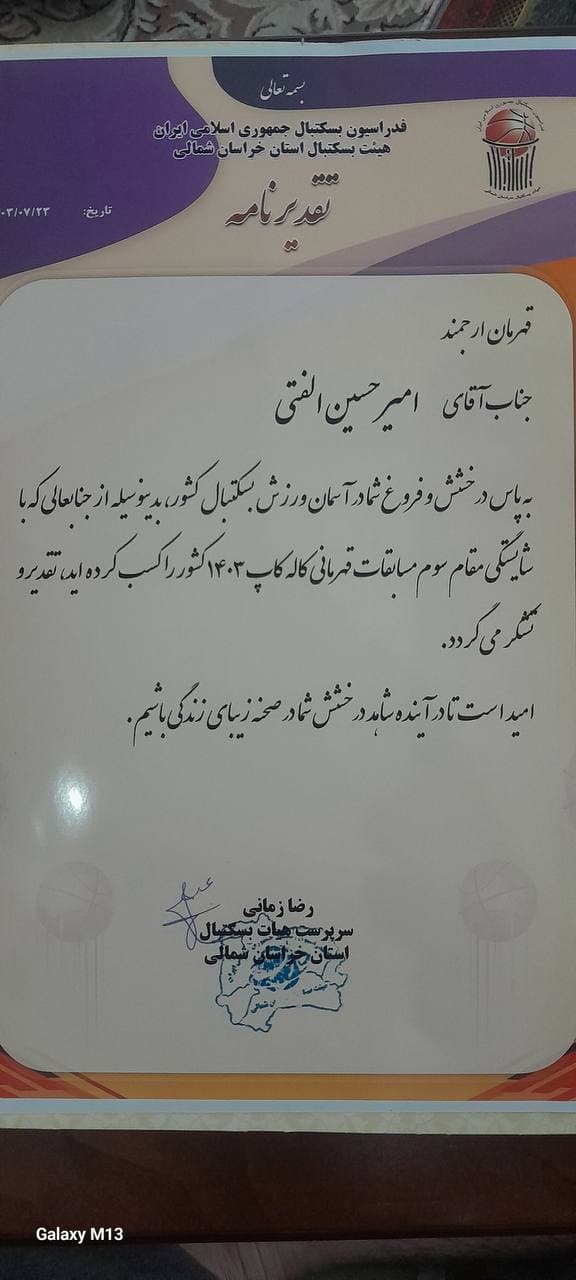 بسمه تعالی
فدراسیون بسکتبال جمهوری اسلامی ایران
هیئت بسکتبال استان خراسان شمالی
تقدیرنامه
تاریخ: ۰۳/۰۷/۲۳
قهرمان ارجمند
جناب آقای امیرحسین الفتی
به پاس درخشش و فروغ شما در آسمان ورزش بسکتبال کشور، بدینوسیله از جنابعالی که با
شایستگی مقام سوم مسابقات قهرمانی کاله کاپ ۱۴۰۳ کشور را کسب کرده اید، تقدیر و
تشکر می گردد.
امید است تا در آینده شاهد درخشش شما در صحنه زیبای زندگی باشیم.
رضا زمانی
سرپرست هیات بسکتبال
استان خراسان شمالی
Galaxy M13